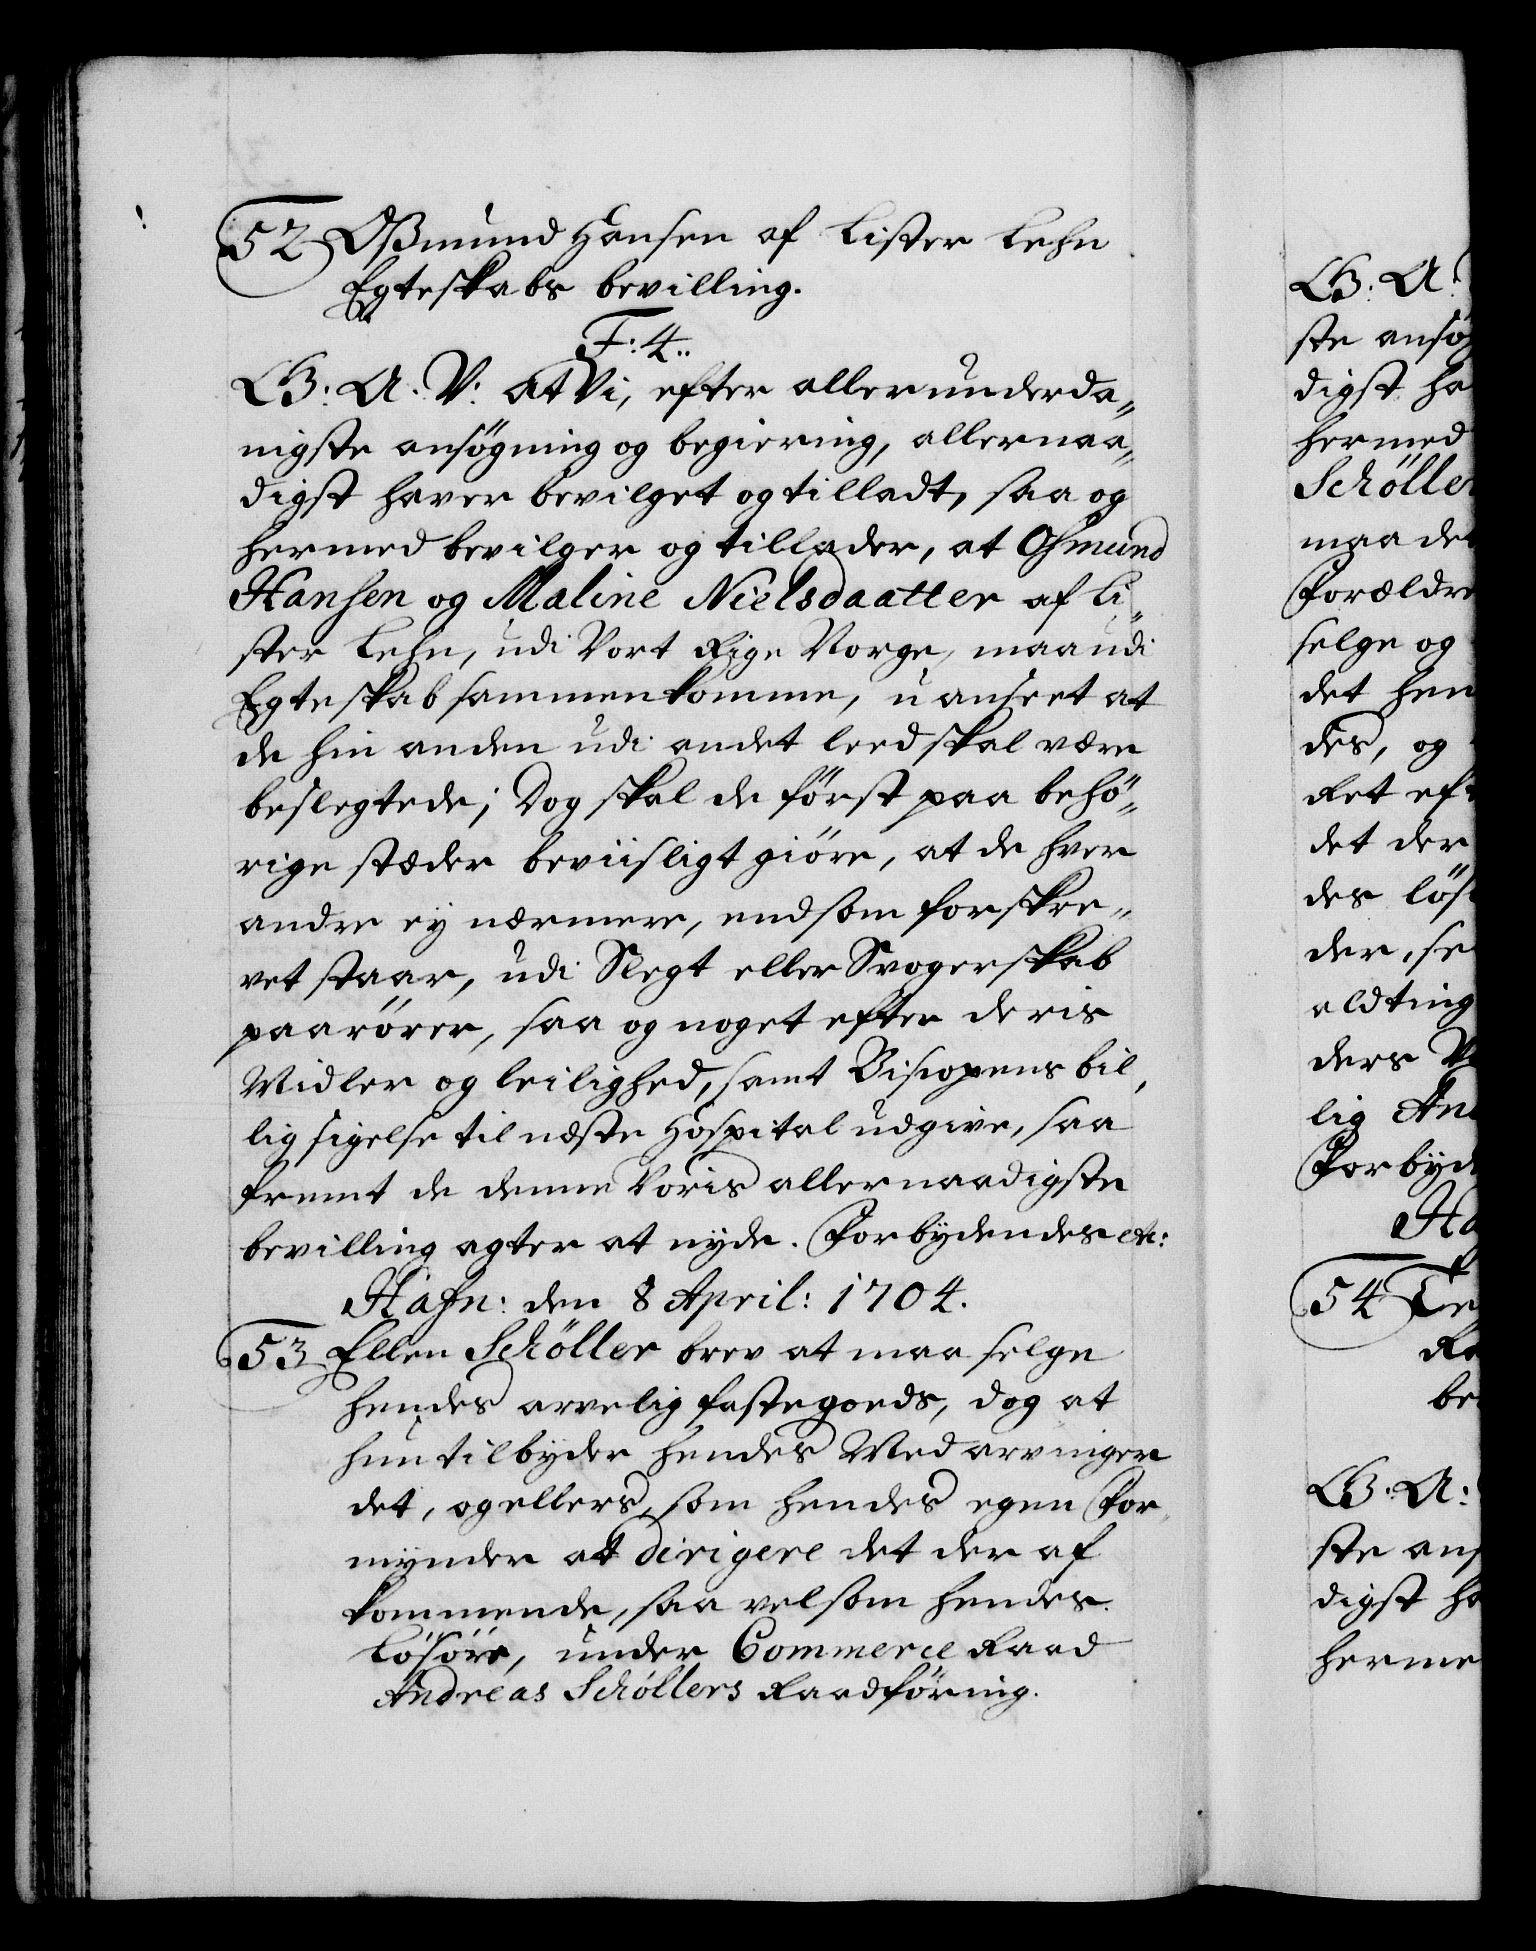 52 Oßmund Hansen af Lister Lehn
Egteskabs bevilling.
F: 4..
G: A: V: at Vi, efter allerunderda„
nigste ansögning og begiering, allernaa„
digst haver bevilget og tilladt, saa og
hermed bevilger og tillader, at Osmund
Hansen og Maline Nielsdaatter af Li„
ster Lehn, udi Vort Rige Norge, maa udi
Egteskab sammenkomme, u anseet at
de hin anden udi andet leed skal være
beslegtede; Dog skal de först paa behö„
rige stæder beviisligt giöre, at de hver
andre ey nærmere, end som forskre„
vet staar, udi Slegt eller Svogerskab
paarörer, saa og noget efter deris
Midler og leilighed, samt Biscopens bil„
lig sigelse til næste Hospital udgive, saa
fremt de denne Voris allernaadigste
bevilling agter at nyde. Forbydendes etc:
Hafn: den 8 April: 1704.
53 Ellen Schöller brev at maa selge
hendes arvelig fastegoeds, dog at
hun tilbyder hendes Med arvinger
det, og ellers, som hendes egen For„
mynder at dirigere det der af
kommende, saa vel som hendes
Lösöre, under Commerce Raad
Andreas Schöllers Raadföring.
G: A:
ste ansög
digst ha
hermed
Schöller
maa det
Forældre
selge og
det hen
des, og
Ret eft
det der
des lös
der, se
aldting
ders
lig An
Forbyd
Ha
54 Te
Ra
be
G: A:
ste ans
digst ha
herme